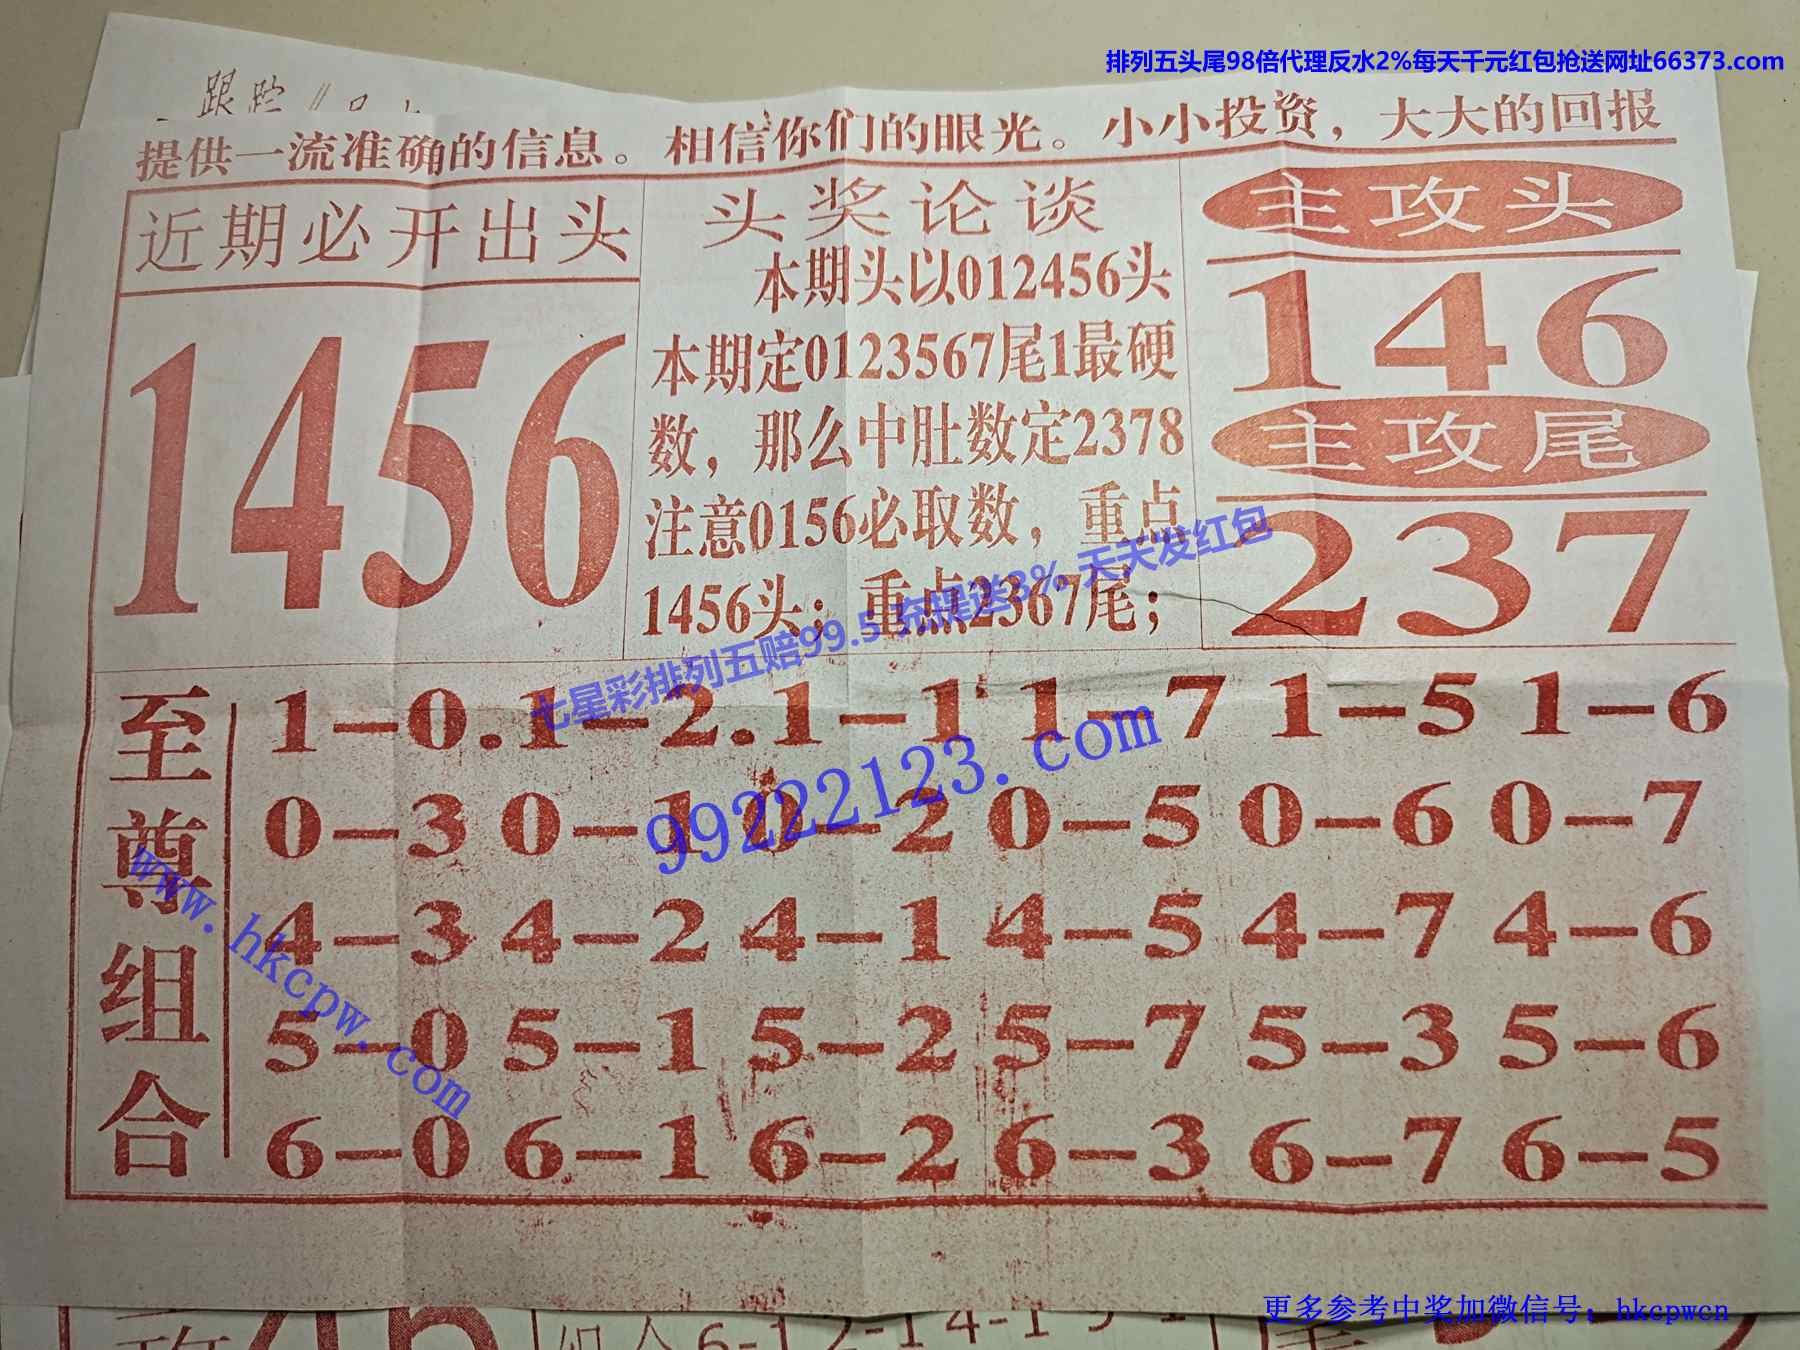 排列五头尾98倍代理反水2%每天千元红包抢送网址66373.com
跟踪
提供一流准确的信息。相信你们的眼光。小小投资，大大的回报
近期必开出头
1456
头奖论谈
本期头以012456头
本期定0123567尾1最硬
数，那么中肚数定2378
注意0156必取数，重点
1456头；重点2367尾；
主攻头
146
主攻尾
237
七星彩排列五赔99.5 充提送3% 天天发红包
99222123.com
www.hkcpw.com
至尊组合
1－0.1－2.1－1 1－7 1－5 1－6
0－3 0－1 0－2 0－5 0－6 0－7
4－3 4－2 4－1 4－5 4－7 4－6
5－0 5－1 5－2 5－7 5－3 5－6
6－0 6－1 6－2 6－3 6－7 6－5
更多参考中奖加微信号：hkcpwcn